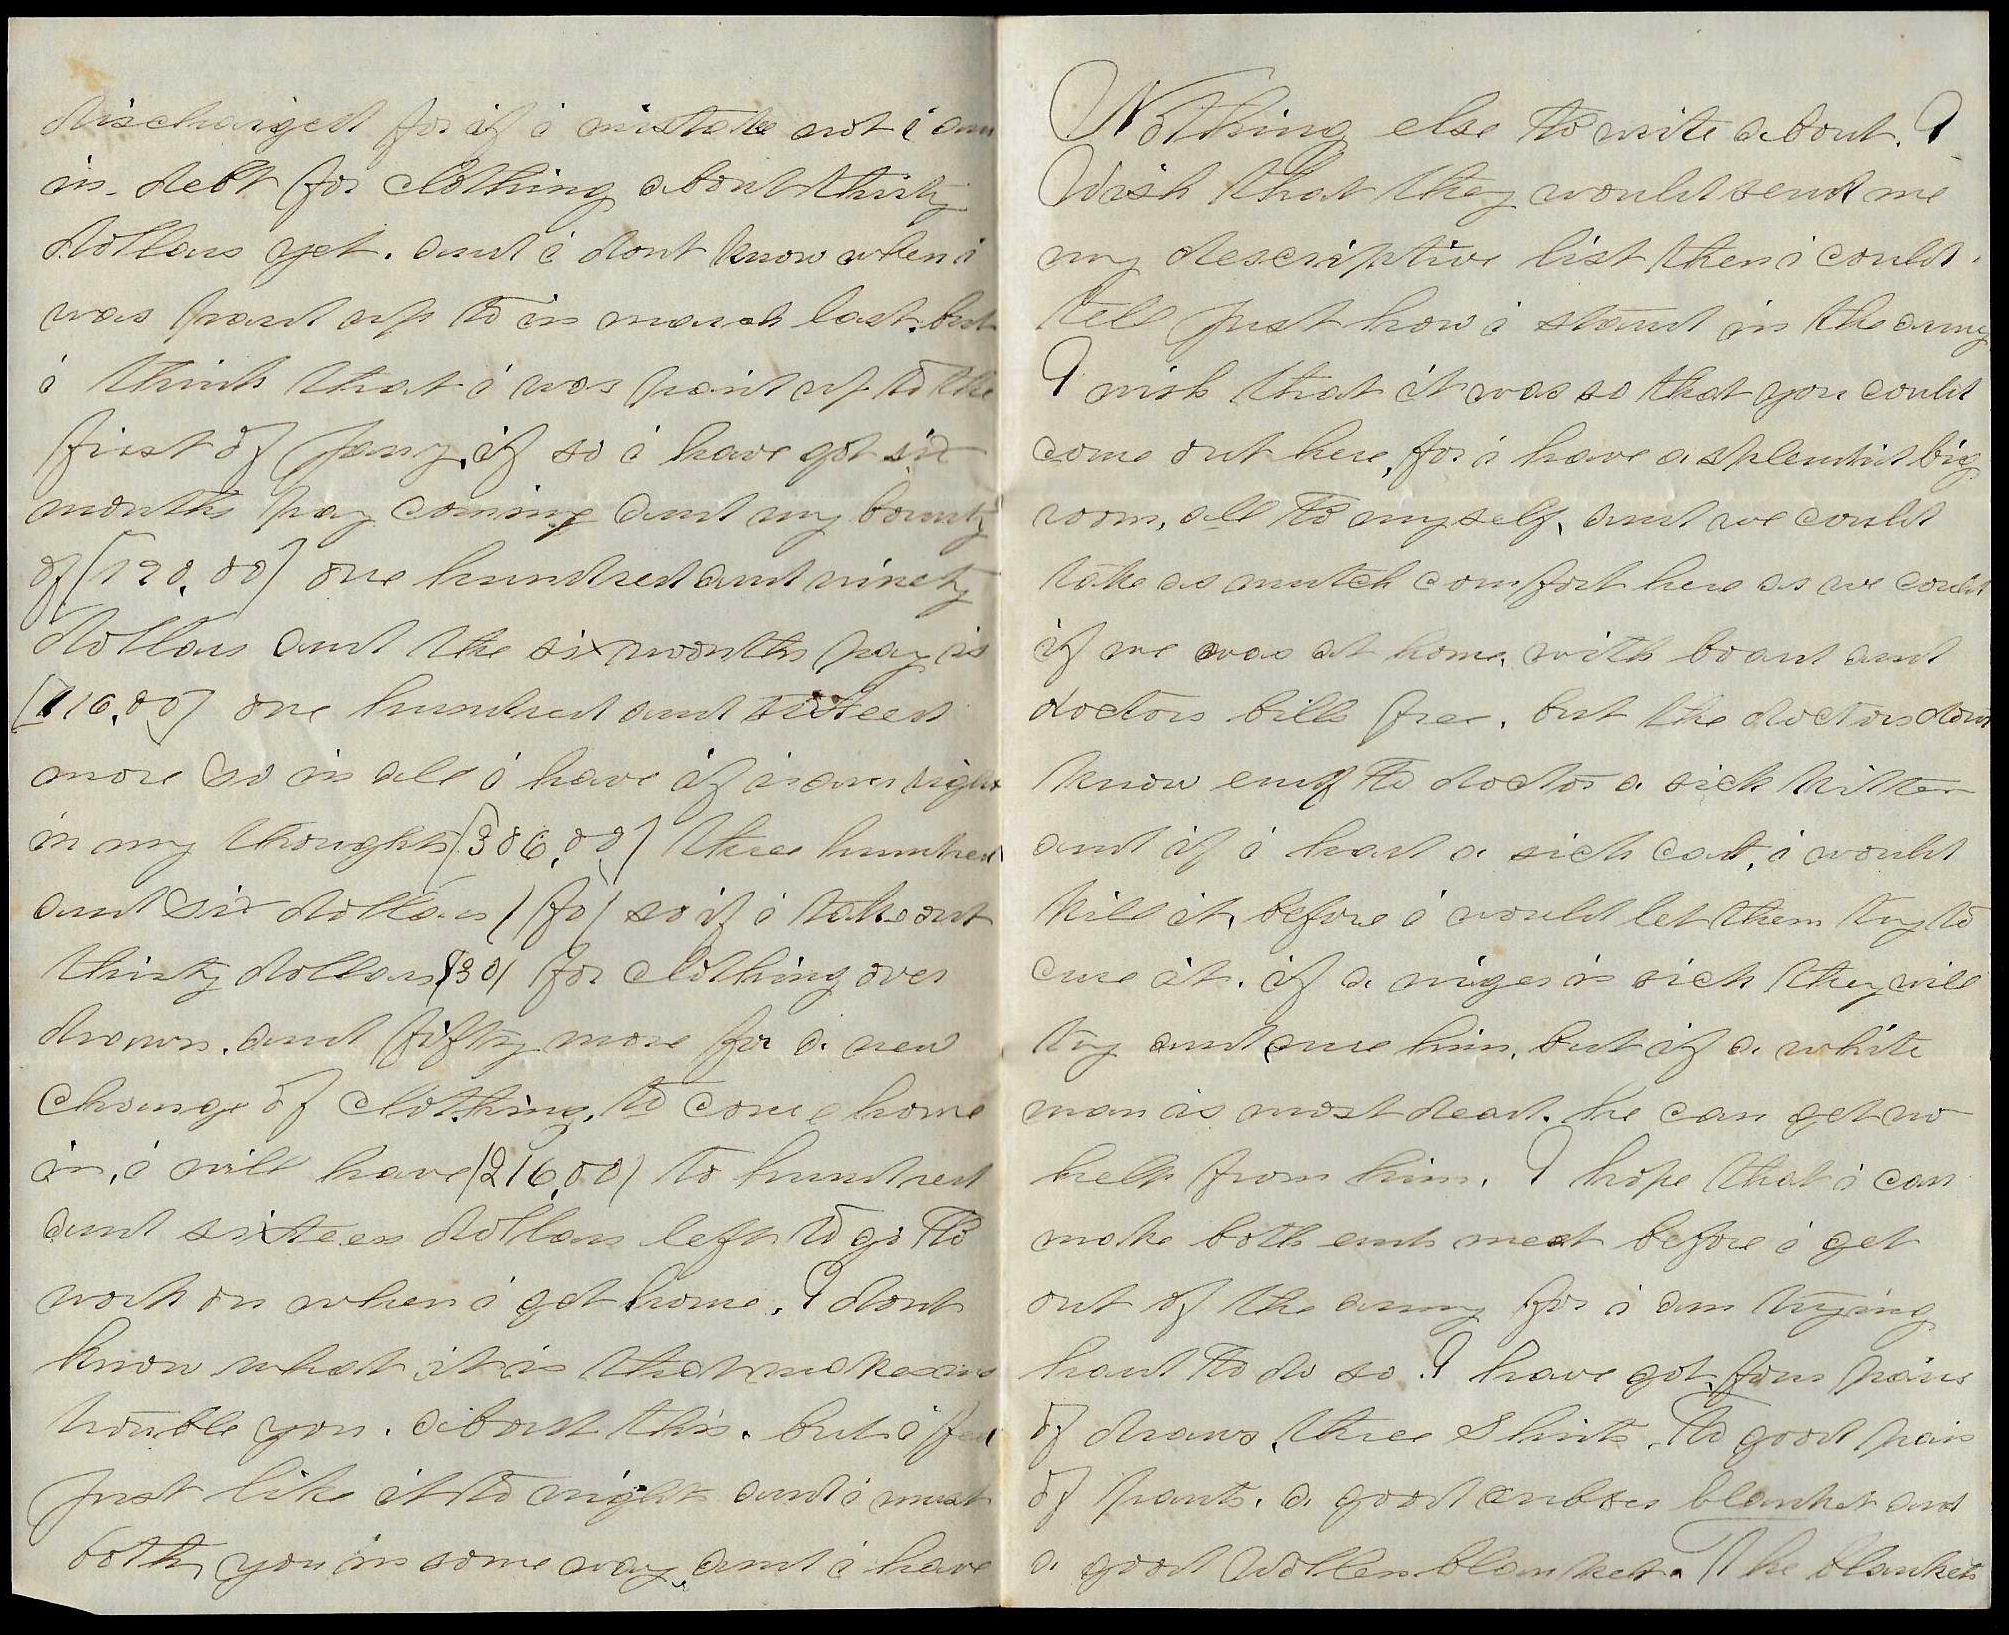 discharged for if i mistake not i am
in debt for clothing about thirty
dollars yet. and i dont know when i
was paid up to in march last. but
i think that i was paid up to the
first of Jany, if so i have got six
months pay coming and my bounty
of [190.00] one hundred and ninety
dollars and the six months pay is
[116.00] one hundred and sixteen
more so in all i have if i am right
in my thoughts [306.00] three hundred
and six dollars so if i take out
thirty dollars (30) for clothing over
drawn. and fifty more for a new
change of clothing, to come home
in, i will have (216.00) to hundred
and sixteen dollars left to go to
work on when i get home. I dont
know what it is that makes me
trouble you. about this. but i feel
just like it to night and i must
both you in some way, and i have
Nothing else to write about. I
Wish that they would send me
my descriptive list then i could
tell just how i stand in the army
I wish that it was so that you could
come out here, for i have a splendid big
room, all to myself, and we could
take as mutch comfort here as we could
if we was at home, with board and
doctors bills free. but the doctors dont
know enuf to doctor a sick kitten
and if i had a sick cat, i would
kill it, before i would let them try to
cure it. if a niger is sick they will
try and cure him, but if a white
man is most dead. he can get no
help from him. I hope that i can
make both ends meet before i get
out of the army for i am trying
hard to do so. I have got four pairs
of draws, three Shirts. To good pair
of pants. a good blanket and
a good Wollen blanket. The blankets